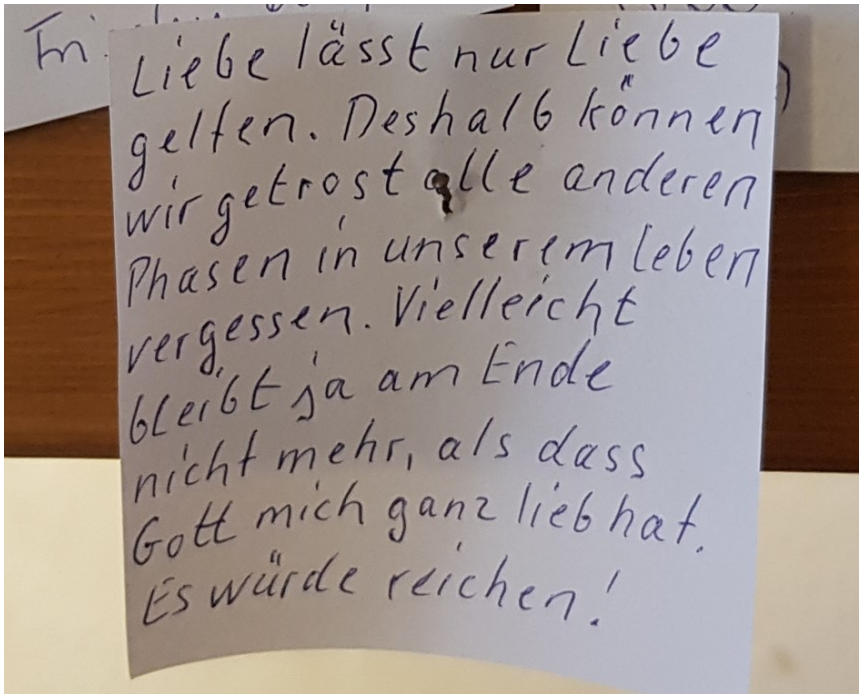 Liebe lässt nur Liebe
gelten. Deshalb können
wir getrost alle anderen
Phasen in unserem Leben
vergessen. Vielleicht
bleibt ja am Ende
nicht mehr, als dass
Gott mich ganz lieb hat.
Es würde reichen!